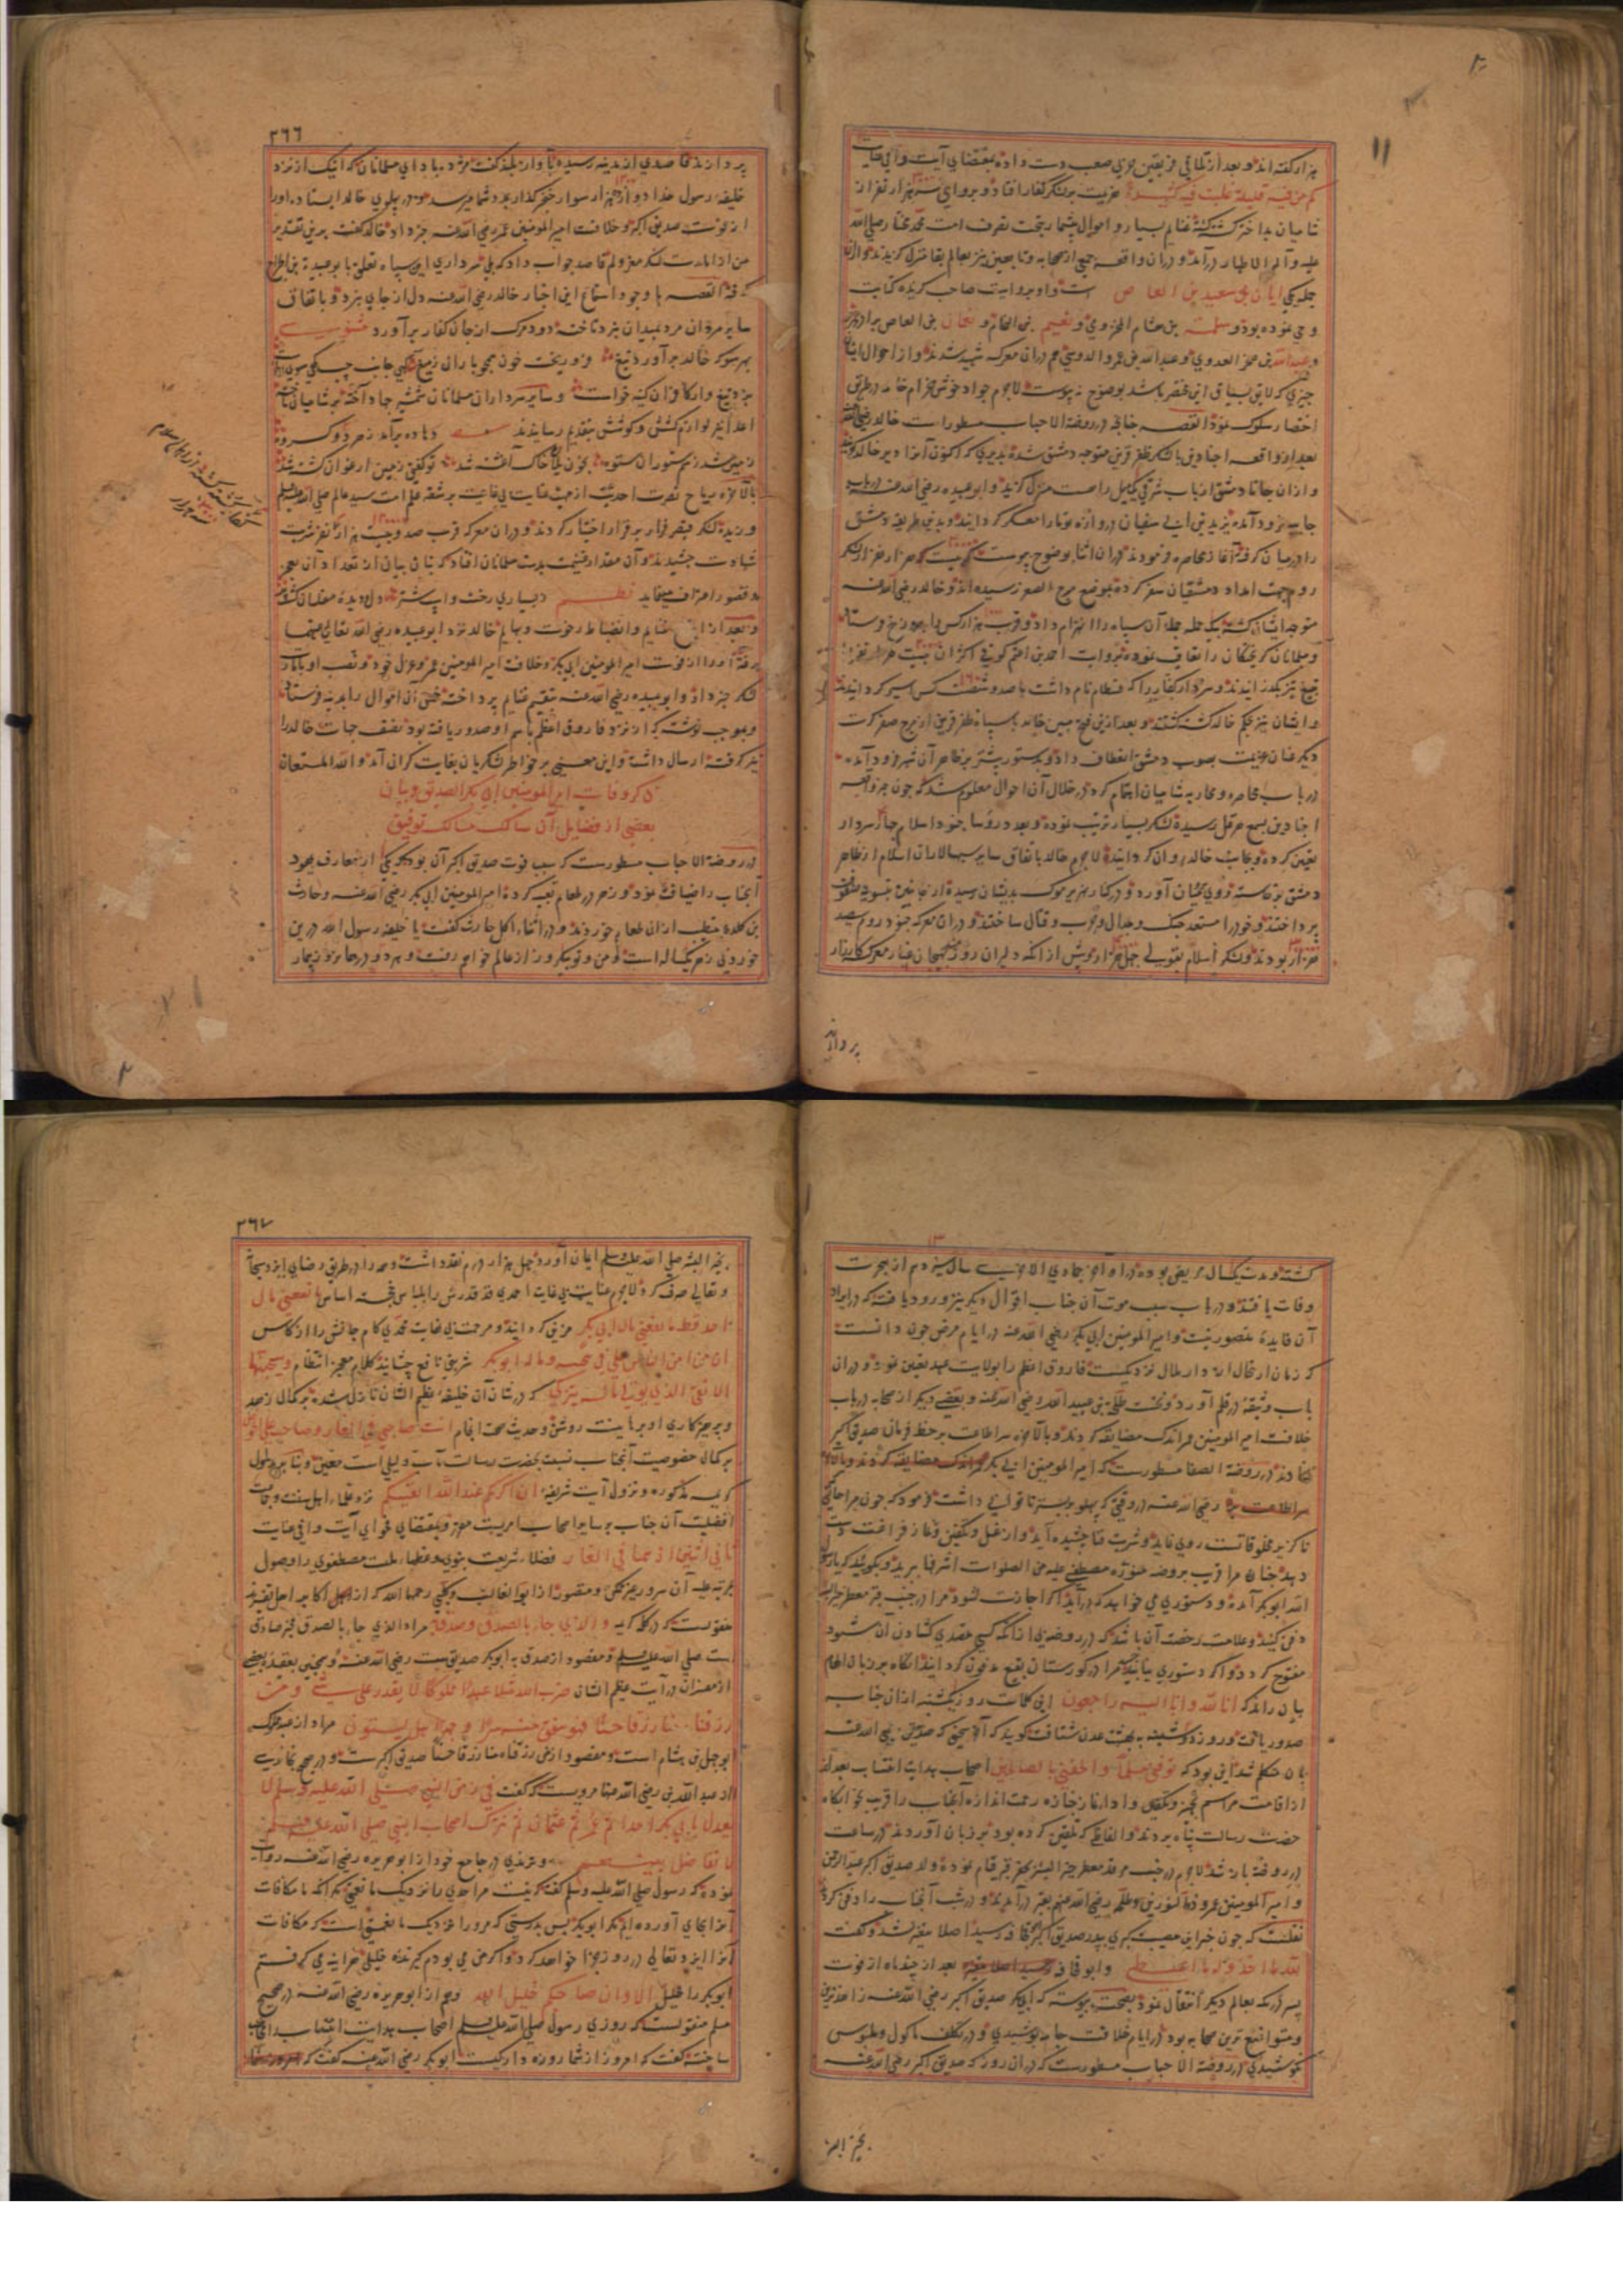 ۱۱
هزار گفته‌اند و بعد از تلاقی فریقین حربی صعب دست داده بمقتضای آیت وافی عنایت
کم من فئة قلیلة غلبت فئة کثیرة هزیمت بر لشکر کفار افتاد و بروایی سه هزار نفر از
شامیان بداختر کشته گشته غنایم بسیار و اموال بیشمار بتحت تصرف امت محمد مختار صلی الله
علیه و آله الاطهار درآمد و دران واقعه جمعی از صحابه و تابعین نیز بعالم بقا منزل گزیدند و ازان
جمله یکی ابان بن سعید بن العاص است و او بروایت صاحب گزیده کتابت
وحی نموده بود و سلمة بن هشام المخزومی و نعیم بن النحام و هشام بن العاص برادر عمرو
و عبدالله بن عمرو الدوسی هم دران معرکه شهید شدند و از احوال ایشان
چیزی که لایق بسیاق این مختصر باشد بوضوح نه پیوست لاجرم جواد خوش خرام خامه در طریق
اختصار سلوک نمود القصه چنانچه در روضة الاحباب مسطور است خالد رضی الله عنه
بعد از واقعه اجنادین با لشکر ظفر قرین متوجه دمشق شده بدیری که اکنون آنرا دیر خالد گویند
و ازان جا تا دمشق از باب شرقی یکمیل راهست منزل گزید و ابو عبیده رضی الله عنه در باب
جابیه فرود آمده یزید بن ابی سفیان دروازه توما را معسکر گردانید و بدین طریقه دمشق
را در میان گرفته آغاز محاصره فرمودند دران اثنا بوضوح پیوست که بیست هزار نفر از لشکر
روم جهت امداد دمشقیان سفر کرده بموضع مرج الصفر رسیده‌اند و خالد رضی الله عنه
متوجه ایشان گشته بیک حمله آن سپاه را انهزام داد و قرب هزار کس را بدوزخ فرستاد
و مسلمانان گریختگان را تعاقب نموده بروایت احمد بن اعثم کوفی اکثر آن بیست هزار نفر را
بتیغ تیز بگذرانیدند و سردار کفار را که قسطام نام داشت با صد و شصت کس اسیر گردانیدند
و ایشان نیز بحکم خالد کشته گشتند و بعد ازین فتح مبین خالد با سپاه ظفر قرین از مرج صفر کرت
دیگر عنان عزیمت بصوب دمشق انعطاف داد و بدستور پیشتر بر ظاهر آن شهر فرود آمده
در باب محاصره و محاربه شامیان اهتمام کرد در خلال آن احوال معلوم شد که چون خبر واقعه
اجنادین بسمع هرقل رسیده لشکر بسیار ترتیب نموده و بعد در رؤسا جنود اسلام چهار سردار
تعیین کرده و بجانب خالد روان گردانید لاجرم خالد باتفاق سایر سپهسالاران اسلام از ظاهر
دمشق برخاسته و روی بمخالفان آورده و در کنار نهر یرموک بدیشان رسیده از جانبین بتسویه صفوف
پرداختند و خود را مستعد جنگ و جدال و حرب و قتال ساختند و دران معرکه جنود روم سیصد
هزار بودند و لشکر اسلام بقولی چهل هزار و پیش از آنکه دلیران روز هیجان غبار معرکه کارزار
پردازند
۳۶۶
پردازند قاصدی از مدینه رسیده بآواز بلند گفت مژده باد ای مسلمانان که اینک از نزد
خلیفه رسول خدا دوازده هزار سوار خنجر گذار بمدد شما میرسد و در پهلوی خالد ایستاده او را
از فوت صدیق اکبر و خلافت امیر المومنین عمر رضی الله عنه خبر داد خالد گفت برین تقدیر
من از امارت لشکر معزولم قاصد جواب داد که بلی سرداری این سپاه تعلق بابو عبیدة بن الجراح
گرفته القصه با وجود استماع این اخبار خالد رضی الله عنه دل از جای نبرد و باتفاق
سایر مردان مرد بمیدان نبرد تاخته دود مرگ از جان کفار برآورد مثنوی
بهر سو که خالد برآورد تیغ فرو ریخت خون همچو باران ز میغ
و سایر سرداران مسلمانان شمشیر جهاد آخته بر شامیان تاخته
اعدا نیز لوازم کشش و کوشش بتقدیم رسانیدند
زمین شد ز سم ستوران ستوه بخون یلان خاک آغشته شد تو گفتی زمین ارغوان کشته شد
بالاخره ریاح نصرت احدیت از مهب عنایت بی غایت بر شقه علم امت سید عالم صلی الله علیه وسلم
وزیده لشکر قیصر فرار بر قرار اختیار کردند و دران معرکه قرب صد و بیست هزار نفر شربت
شهادت چشیدند و آن مقدار غنیمت بدست مسلمانان افتاد که بنان بیان از تعداد آن بعجز
و قصور اعتراف مینماید نظم ز بسیاری رخت و اسپ و شتر دل و دیده مفلسان گشت پر
و بعد از جمع غنایم و انضباط رخوت و بهایم خالد نزد ابو عبیده رضی الله تعالی عنهما
رفته او را از فوت امیر المومنین ابی بکر و خلافت امیر المومنین عمر و عزل خود و نصب او بامارت
لشکر خبر داد و ابو عبیده رضی الله عنه بتقسیم غنایم پرداخته خمس آن اموال را بمدینه فرستاد
و بموجب نوشته که از نزد فاروق اعظم باسم او صدور یافته بود نصف جهات خالد را
نیز گرفته ارسال داشت و این معنی بر خواطر لشکریان بغایت گران آمد و الله المستعان
ذکر وفات امیر المومنین ابی بکر الصدیق و بیان
بعضی از فضایل آن سالک مسالک توفیق
در روضة الاحباب مسطورست که سبب فوت صدیق اکبر آن بود که یکی از معارف یهود
آنجناب را ضیافت نمود و زهر در طعام تعبیه کرده امیر المومنین ابی بکر رضی الله عنه و حارث
بن کلده متطبب ازان طعام خوردند و در اثناء اکل حارث گفت یا خلیفه رسول الله درین
خوردنی زهر یکساله است و من و تو بیکروز از عالم خواهم رفت و هر دو در همان روز بیمار
۱۳
گشته و مدت یکسال مریض بوده در اواخر جمادی الاخری سال سیزدهم از هجرت
وفات یافتند و در باب سبب موت آن جناب اقوال دیگر نیز ورود یافته که در ایراد
آن فایده متصور نیست و امیر المومنین ابی بکر رضی الله عنه در ایام مرض چون دانست
که زمان ارتحال از دار ملال نزدیکست فاروق اعظم را بولایت عهد تعین نمود و دران
باب وثیقه در قلم آورد و نخست طلحة بن عبید الله رضی الله عنه و بعضی دیگر از صحابه در باب
خلافت امیر المومنین عمر اندک مضایقه کردند و بالاخره سر اطاعت بر خط فرمان صدیق اکبر
نهادند در روضة الصفا مسطورست که امیر المومنین ابی بکر
رضی الله عنه در وقتی که پهلو بر بستر ناتوانی داشت فرمود که چون مرا حالتی
ناگزیر مخلوقاتست روی نماید و شربت فنا چشیده آید و از غسل و تکفین و نماز فراغت دست
دهد جنازه مرا قریب بروضه منوره مصطفی علیه من الصلوات اشرفها برید و بگوئید که یا رسول
الله ابوبکر آمده و دستوری می خواهد که درآید اگر اجازت شود مرا در جنب قبر معطر خیر البشر
دفن کنید و علامت رخصت آن باشد که در روضه بی ازانکه کسی متصدی گشادن آن شود
مفتوح گردد و اگر دستوری نیابید مرا در گورستان بقیع مدفون گردانید آنگاه بر زبان الهام
بیان راند که انا لله وانا الیه راجعون این کلمات روز یکشنبه ازان جناب
صدور یافت و روز دوشنبه به بهشت عدن شتافت گویند که آخر سخنی که صدیق رضی الله عنه
بان متکلم شد این بود که توفنی مسلما والحقنی بالصالحین اصحاب هدایت انتساب بعد از
اقامت مراسم تجهیز و تکفین و ادای نماز جنازه رحمت اندازه آنجناب را قریب خوابگاه
حضرت رسالت پناه بردند و الفاظی که تلقین کرده بود بر زبان آوردند در ساعت
در روضه باز شد لاجرم در جنب مرقد معطر خیر البشر بحفر قبر قیام نموده ولد صدیق اکبر عبد الرحمن
و امیر المومنین عمر و ذو النورین و طلحه رضی الله عنهم بقبر درآمدند و در شب آنجناب را دفن کردند
نقلست که چون خبر این مصیبت کبری بپدر صدیق اکبر ابو قحافه رسید اصلا متغیر نشد و گفت
لله ما اخذ وله ما اعطی و ابو قحافه بعد از چند ماه از فوت
پسر در مکه بعالم دیگر انتقال نمود بصحت پیوسته که ابی بکر صدیق اکبر رضی الله عنه زاهدترین
و متواضع ترین صحابه بود در ایام خلافت جامه پوشیدی و در تکلف ماکول و ملبوس
نکوشیدی در روضة الاحباب مسطورست که دران روز که صدیق اکبر رضی الله عنه
بخیر البشر
۳۶۷
بخیر البشر صلی الله علیه وسلم ایمان آورد چهل هزار درم نقد داشت و همه را در طریق رضای ایزد سبحانه
و تعالی صرف کرد لاجرم عنایت بی غایت احمدی قد قدرش را بلباس خجسته اساس ما نفعنی مال
احد قط ما نفعنی مال ابی بکر مزین گردانید و مرحمت بی نهایت محمدی کام جانش را از کاس
ان من امن الناس علی فی صحبته وماله ابوبکر شربتی نافع چشانید کلام معجز انتظام وسیجنبها
الاتقی الذی یؤتی ماله یتزکی که در شان آن خلیفه عظیم الشان نازل شده بر کمال زهد
و پرهیزکاری او برهانیست روشن و حدیث صحت انجام انت صاحبی فی الغار وصاحبی علی الحوض
بر کمال خصوصیت آنجناب نسبت بحضرت رسالت مآب دلیلی است معین و بنابر مدلول
کریمه مذکوره و نزول آیت شریفه ان اکرمکم عند الله اتقیکم نزد علماء اهل سنت و جماعت
افضلیت آن جناب بر سایر اصحاب امریست مقرر و بمقتضای فحوای آیت وافی عنایت
ثانی اثنین اذ هما فی الغار فضلاء شریعت نبوی و عظماء ملت مصطفوی را وصول
بمرتبه علیه آن سرور متمکن و متصور از ابو العالیه و کلبی رحمهما الله که از اجل اکابر اهل تفسیرند
منقولست که در کریمه والذی جاء بالصدق وصدق به مراد از الذی جاء بالصدق مخبر صادق
است صلی الله علیه وسلم و مقصود از صدق به ابوبکر صدیق است رضی الله عنه و همچنین بعقیده بعضی
از مفسران در آیت عظیم الشان ضرب الله مثلا عبدا مملوکا لا یقدر علی شیء ومن
رزقناه منا رزقا حسنا فهو ینفق منه سرا وجهرا هل یستوون مراد از عبد مملوک
ابو جهل بن هشام است و مقصود از من رزقناه منا رزقا حسنا صدیق اکبرست و در صحیح بخاری
از عبد الله بن رضی الله عنهما مرویست که گفت فی زمن النبی صلی الله علیه وسلم لا
نعدل بابی بکر احدا ثم عمر ثم عثمان ثم نترک اصحاب النبی صلی الله علیه وسلم
لا نفاضل بینهم و ترمذی در جامع خود از ابو هریره رضی الله عنه روایت
نموده که رسول صلی الله علیه وسلم گفته که نیست مر احدی را نزدیک ما نعمتی مگر آنکه ما مکافات
آنرا بجای آورده‌ایم مگر ابوبکر پس بدرستی که مر او را نزدیک ما نعمتی است که مکافات
آنرا ایزد تعالی در روز جزا خواهد کرد و اگر من می بودم گیرنده خلیلی هر آینه می گرفتم
ابوبکر را خلیل الا وان صاحبکم خلیل الله و هم از ابو هریره رضی الله عنه در صحیح
مسلم منقولست که روزی رسول صلی الله علیه وسلم اصحاب هدایت انتساب را مخاطب
ساخته گفت که امروز از شما روزه دار کیست ابوبکر رضی الله عنه گفت که